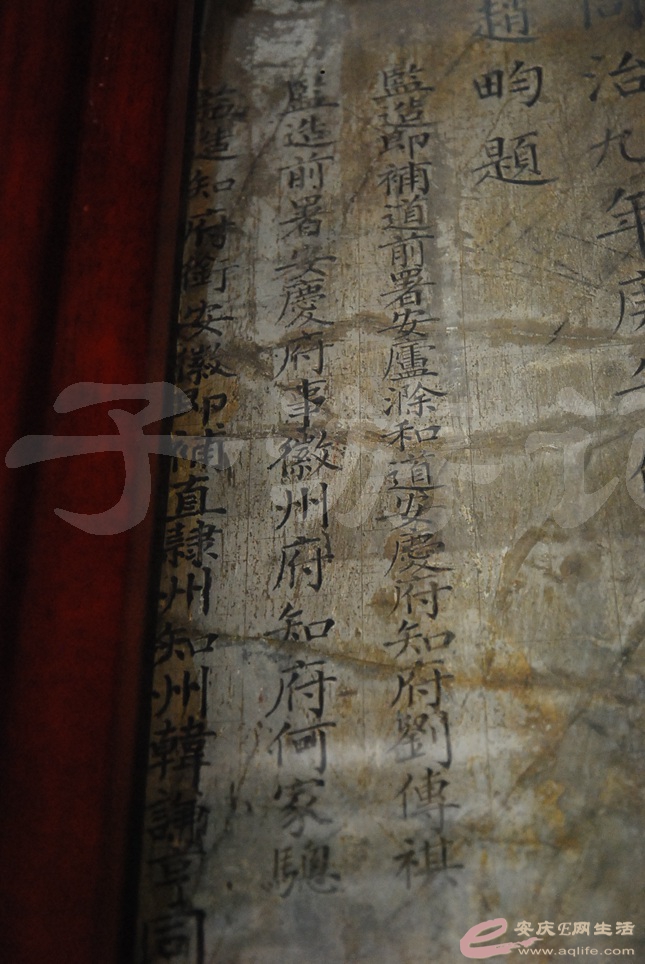 同治九年庚午
趙畇題
監造即補道前署安廬滁和道安慶府知府劉傳祺
監造前署安慶府事徽州府知府何家驄
監造知府銜安徽即補直隸州知州韓謙亨同
安庆E网生活
www.aqlife.com